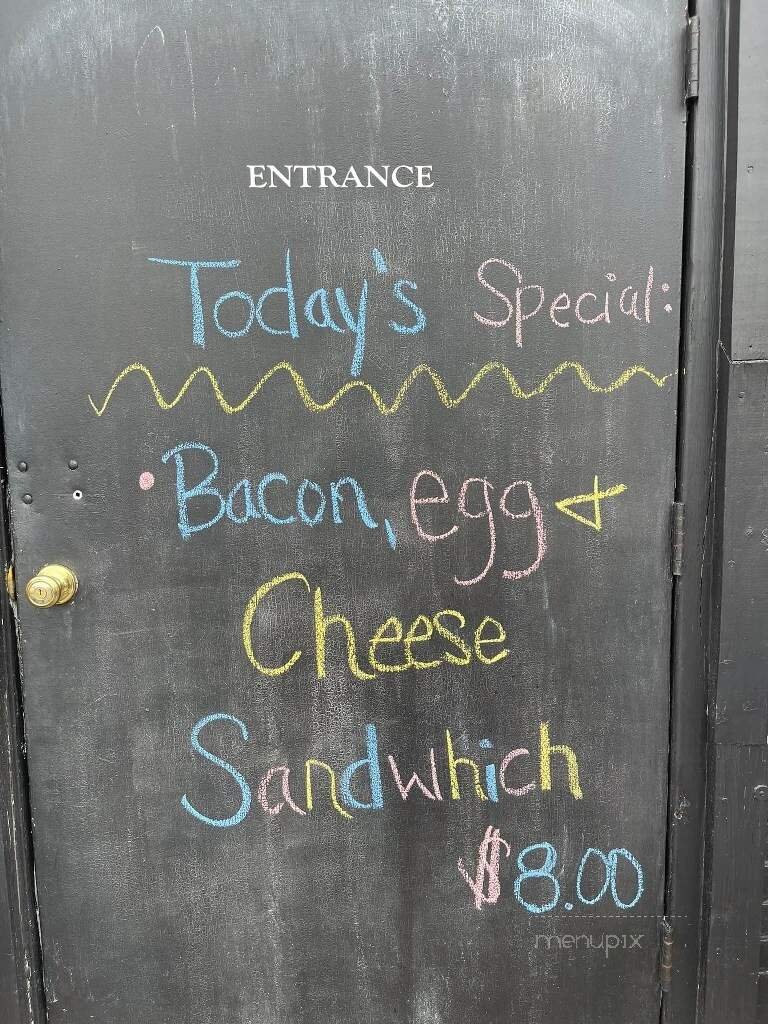 ENTRANCE
Today's Special:
• Bacon, egg &
Cheese
Sandwhich
$8.00
menupix